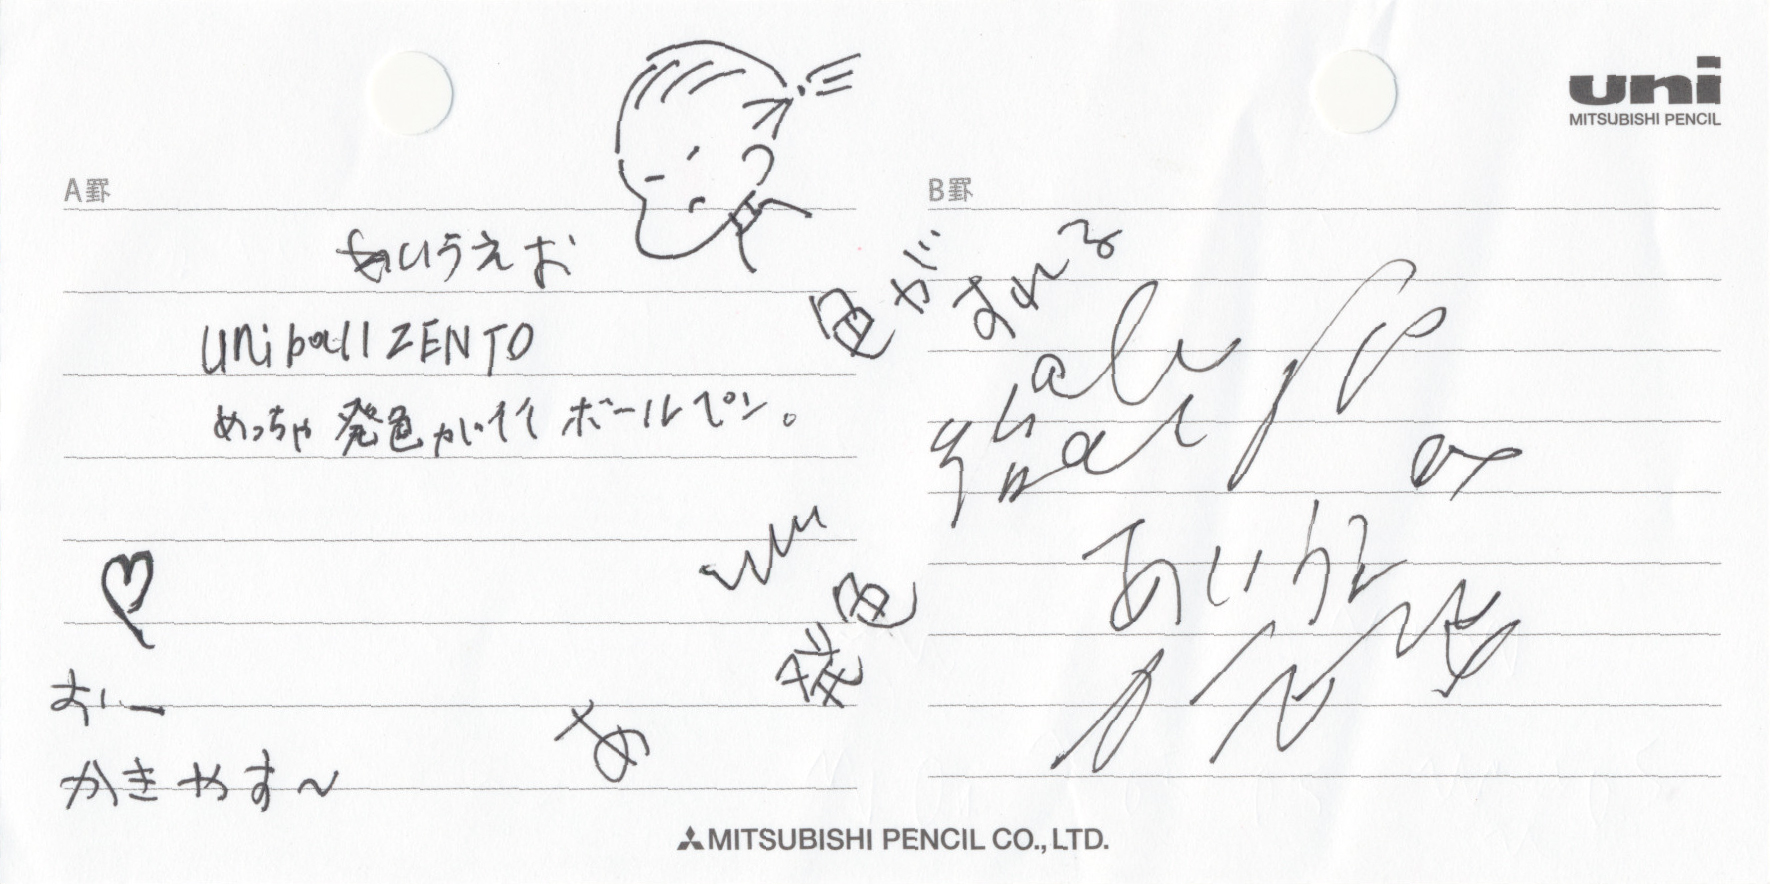 uni
MITSUBISHI PENCIL
A罫
B罫
あいうえお
uni ball ZENTO
めっちゃ発色がいイイボールペン。
色が
すれる
あいうえ
発色
あ
おいー
かきやす〜
MITSUBISHI PENCIL CO., LTD.